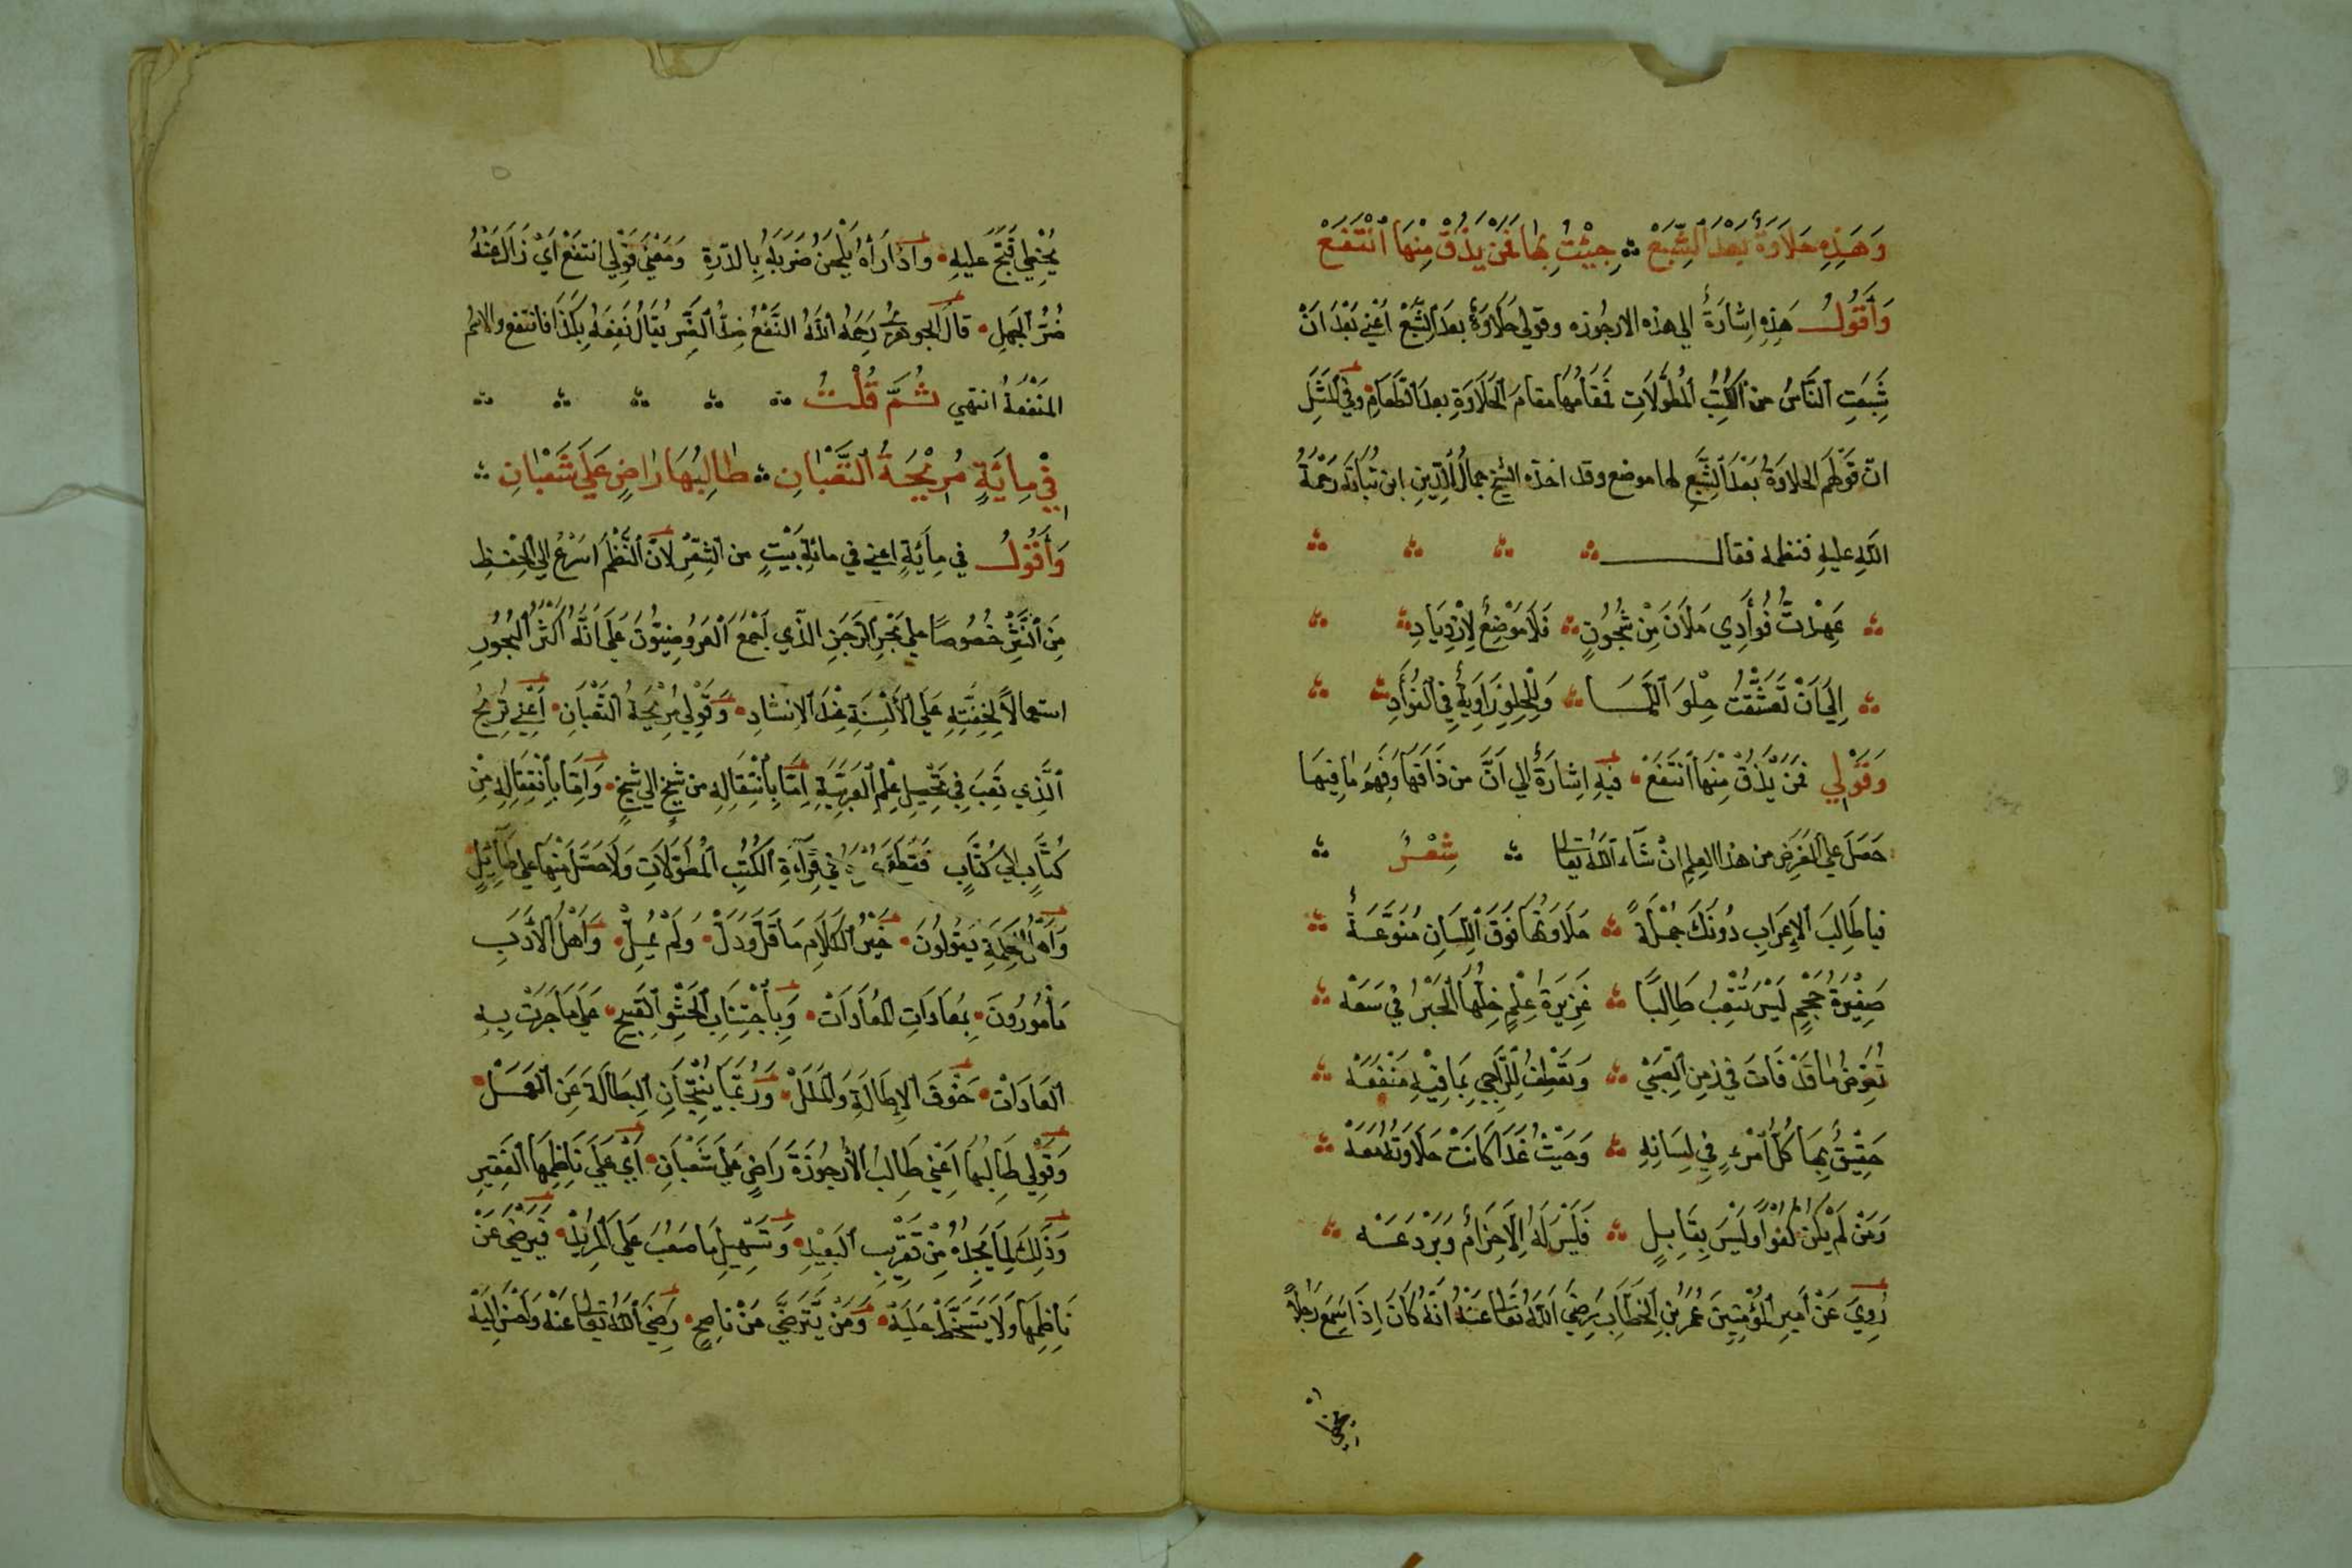 وَهَذِهِ حَلَاوَةٌ بَعْدَ الشِّبَعْ ۞ جِيْتُ بِهَا فَمَنْ يَذُقْ مِنْهَا انْتَفَعْ
وَأَقُولُ هَذِهِ اِشَارَةٌ الي هذه الارجُوزه وقولي حَلَاوَةٌ بعدَ الشِّبَعْ اعْنِي بَعْدَ انْ
شَبِعَتِ النَّاسُ من الكُتُبِ المُطَوَّلَاتِ فمَقَامُهَا مقامَ الحَلَاوَةِ بعدَ الطَّعَامِ وفي المَثَلِ
انّ قَوْلَهُم الحلاوَةُ بَعْدَ الشِّبَعِ لها موضع وقد اخذه الشيخ جمالُ الدِّينِ ابن نُبَاتَه رَحْمَةُ
اللهِ عليهِ فنظمه فقال
عَهِدْتُ فُوأَدِي مَلَآنَ مِنْ شُجُونٍ ۞ فَلَا مَوْضِعٌ لِازْدِيَادِ
اِلَي اَنْ تَعَشَّقْتُ حِلْوَ اللَّمَا ۞ وَلِلْحِلِوِ زَاوِيَةٌ فِي الفُوَأدِ
وَقَوْلِي فمَنْ يَذُقْ مِنْهَا انْتَفَعْ فيهِ اِشارَةٌ الي اَنَّ من ذَاقَهَا وَفَهِمَ مَا فِيهَا
حَصَلَ علي الغَرَضِ من هذا العِلمِ انْ شَآءَ اللهُ تعالى ۞ شِعْرٌ
فيا طَالِبَ الاِعرَابِ دُونَكَ جُمْلَةً ۞ حَلَاوَتُهَا فَوَقَ اللِّسَانِ مُنَوَّعَةٌ
صَغِيْرَةُ حَجْمٍ لَيْسَ تُتْعِبُ طَالِبًا ۞ غَزِيرَةُ عِلْمٍ خِلْهَا البَحْرُ في سَعَهْ
تُعَوِّضُ مَا قَدْ فَاتَ في زَمِنِ الصِّبَيْ ۞ وَتَعْطِفُ لِلرَّاجِي بِمَا فِيْهِ مَنْفَعَهْ
حَقِيْقٌ بِهَا كُلُّ امْرءٍ فِي لِسَانِهِ ۞ وَحَيْثُ غَدَا كَانَتْ حَلَاوَتُهُ مَعَهْ
وَمَنْ لَمْ يَكُنْ كُفْوًا وَلَيْسَ بِقَابِلٍ ۞ فَلَيْسَ لَهُ اِلَّا حِزَامٌ وَبَرْدَعَهْ
رُوِيَ عَنْ أمِيرِ المُؤْمِنِينَ عُمَرُ بْنِ الخَطَّابِ رَضِيَ اللهُ تَعَالَى عَنْهُ انَّهُ كَانَ اِذَا سَمِعَ رَجُلاً
يُخْطِي
يُخْطِي قَبَّحَ عليهِ واذا رَآهُ يَلْحَنُ ضَرَبَهُ بِالدّرةِ وَمَعْنَي قَوْلِي انتفَعْ اَيْ زَالَ عَنْهُ
ضُرُّ الجَهلِ قالَ الجوهري رَحِمَهُ اللهُ النَّفْعُ ضِدُّ الضَّرِ يُقَالُ نَفَعَهُ بِكَذَا فانتَفع والاسْمُ
المَنْفَعَةُ انتهي ثُمَّ قُلْتُ
فِي مِايَةٍ مُرِيْحَةُ التَّعْبَانِ ۞ طَالِبُهَا رَاضٍ عَلَي شَعْبَانِ
وَأَقُوْلُ في مِأيَةٍ اعني في مائةِ بَيْتٍ من الشِّعْرِ لانّ النَّظْمَ اسْرَعُ الي الحِفظِ
مِنَ النَّثْرِ خصُوصًا علي بَحْرِ الرَّجَزِ الذّي اَجْمَعَ العَرُوضِيّوْنَ عَلَي انَّهُ اكثَرُ البُحُورِ
استعمالاً لِخِفَّتِهِ عَلَي الألْسِنَةِ عِنْدَ الاِنشادِ وَقَوْلِي مُرِيْحَةُ التَّعْبَانِ اَعْنِي تُرِيْحُ
الَّذِي تعِبَ فِي تَحْصِيلِ عِلْمِ العَرَبِيَّةِ اِمَّا بِانْتِقَالِهِ من شَيْخٍ الي شيخٍ وَاِمَّا بِانْتِقَالِهِ مِنْ
كُتَّابٍ الي كُتَّابٍ في قِرَآءَةِ الكُتُبِ المُطَوّلَاتِ وَلَا حَصَلَ مِنْهَا علي طَآئِلٍ
وَاَهْلُ الحِكمَةِ يَقولُونَ خَيْرُ الكَلَامِ مَا قَلَّ وَدَلّْ وَلَمْ يُمِلّْ وَاَهْلُ الأَدَبِ
مَأمُورُونَ بمُعَادَاتِ المُعَادَاتْ وَبِاجْتِنَابِ الحَشْوِ القَبِيحِ عَلَي مَا جَرَتْ بِهِ
العَادَاتْ خَوْفَ الاِطَالَةِ وَالمَلَلْ وَرُبَّمَا يُنْتِجَانِ البَطَالَةَ عَنِ العَمَلْ
وَقَوْلِي طَالِبُهَا اَعْنِي طَالِبَ الأُرجُوزَةَ رَاضٍ عَلَي شَعْبَانِ اَيْ عَلَي نَاظِمِهَا الفَقِيرِ
وَذَلِكَ لِمَا يَجِدُهُ مِنْ تَقْرِيبِ البَعِيْدِ وَتَسْهِيلِ مَا صَعُبَ عَلَي المُرِيْدِ فَيَرْضَيَ عَنْ
نَاظِمِهَا وَلَا يَتَسَخَّطْ عَلَيْهْ وَمَنْ يَتَرَضَّي مَنْ نَاصِحٍ رضي الله تعالى عنهُ وَاَحْسَنَ اِلَيْهْ